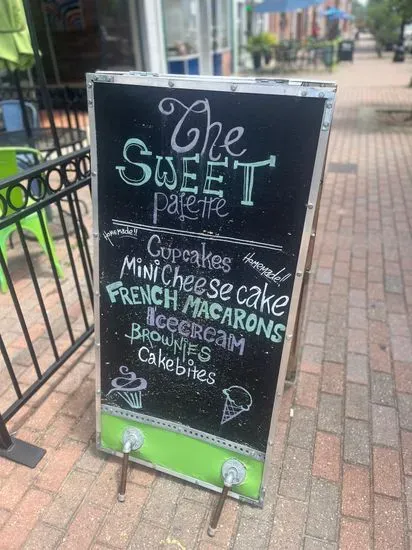 The
SWEET
palette
Homemade!!
Homemade!!
Cupcakes
Mini Cheese cake
FRENCH MACARONS
ICECREAM
BROWNIES
Cakebites